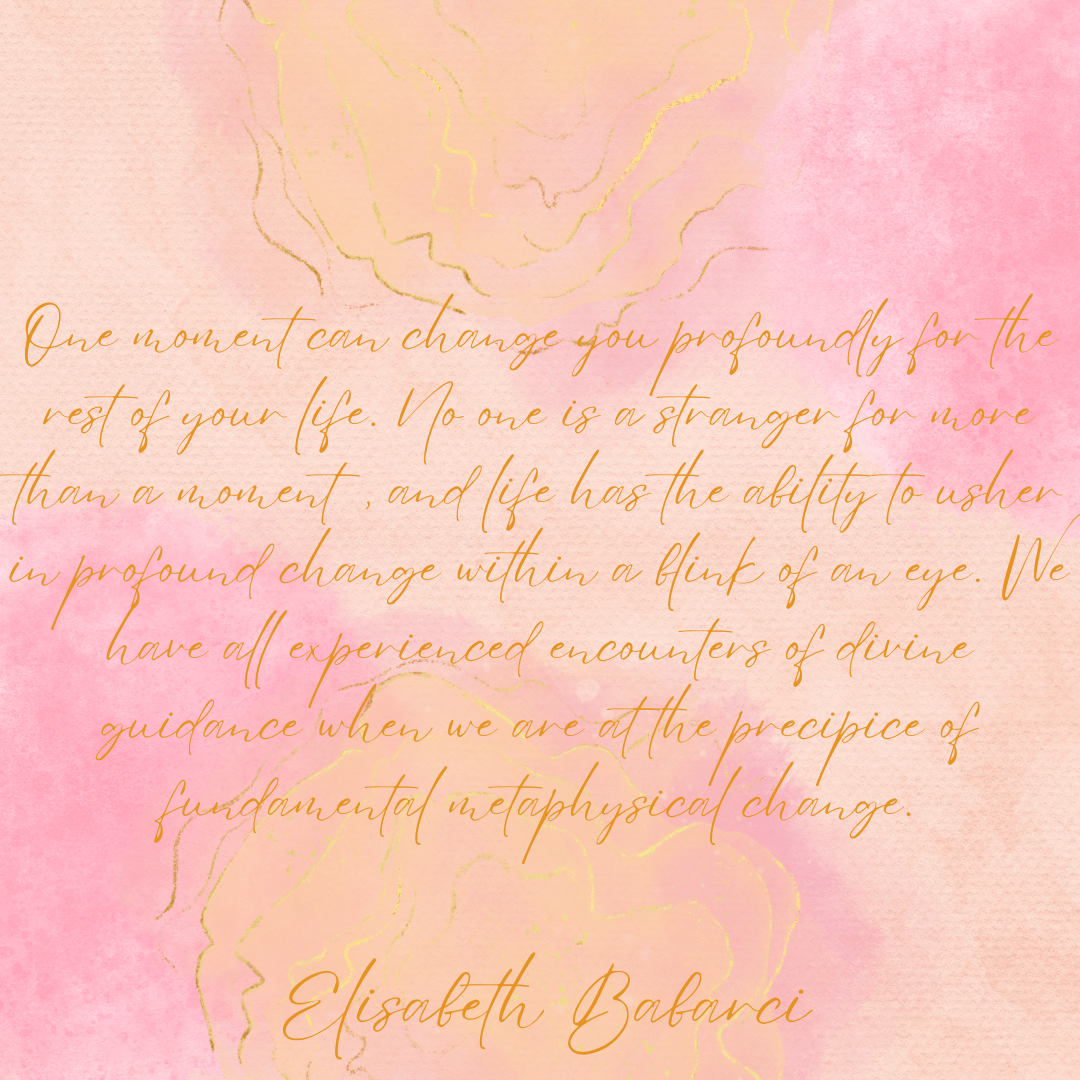 One moment can change you profoundly for the
rest of your life. No one is a stranger for more
than a moment , and life has the ability to usher
in profound change within a blink of an eye. We
have all experienced encounters of divine
guidance when we are at the precipice of
fundamental metaphysical change.
Elisabeth Babarci